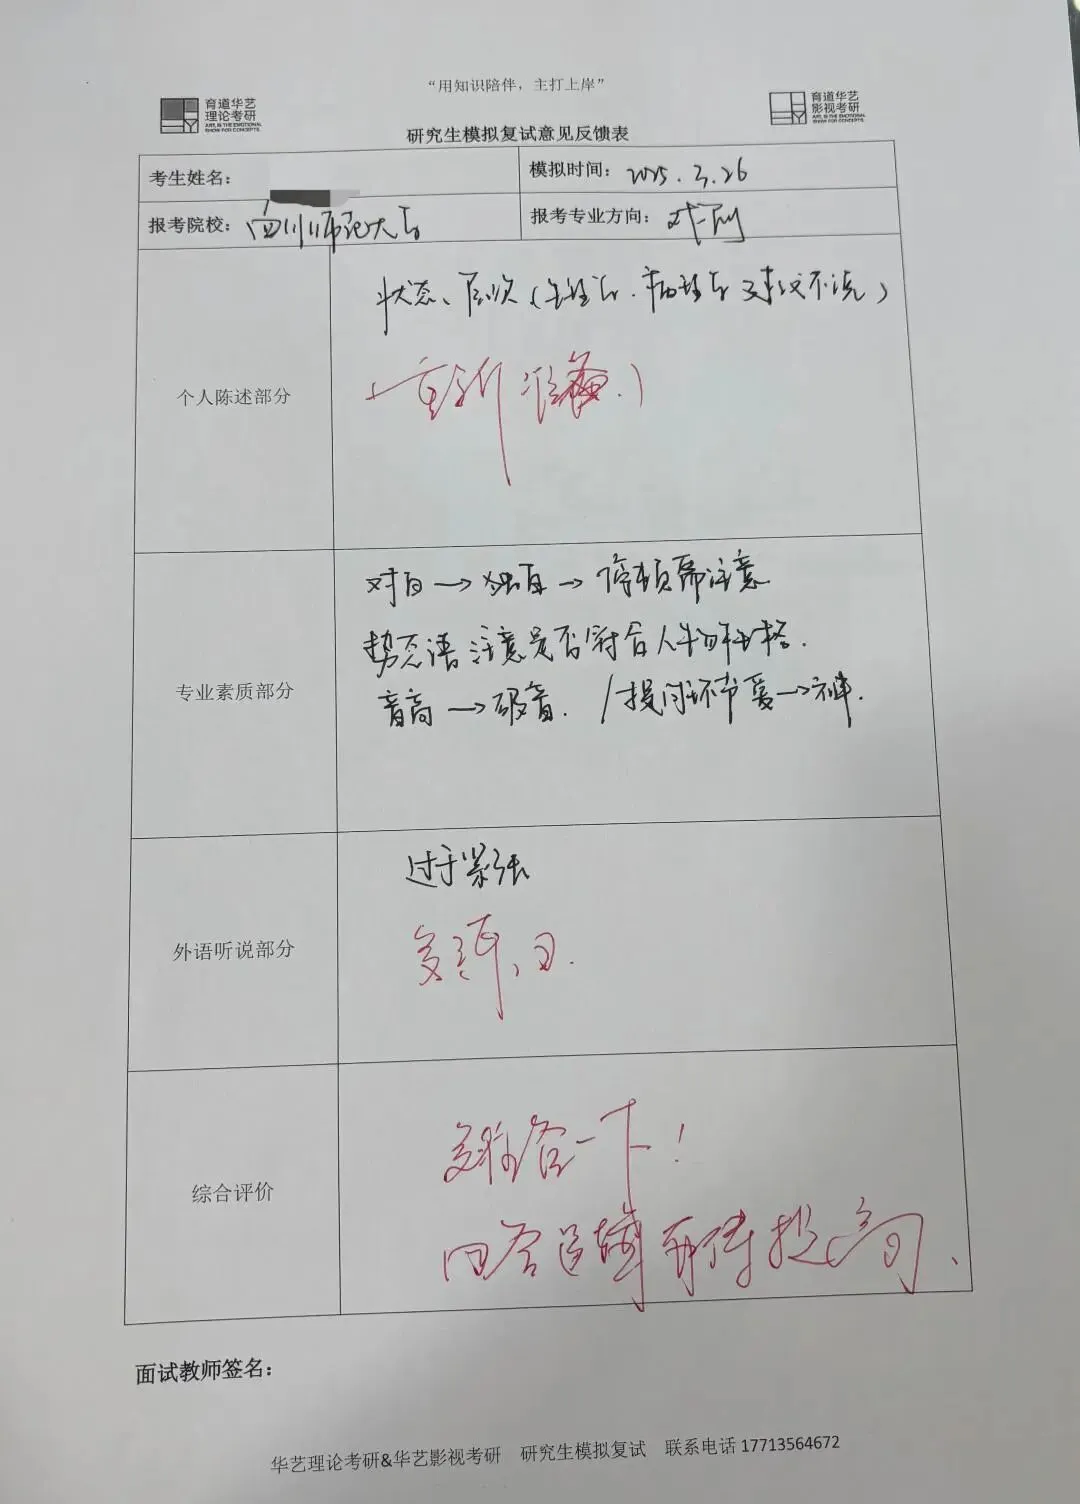 “用知识陪伴，主打上岸”
育道华艺
理论考研
ART, IS THE EMOTIONAL
SHOW FOR CONCEPTS.
育道华艺
影视考研
ART, IS THE EMOTIONAL
SHOW FOR CONCEPTS.
研究生模拟复试意见反馈表
考生姓名：
模拟时间：2025.3.26
报考院校：四川师范大学
报考专业方向：戏剧
个人陈述部分
状态、层次（
重新准备.）
专业素质部分
对白→独白→停顿需注意
势态语注意是否符合人物性格.
音高→破音. /提问环节要→神.
外语听说部分
过于紧张
多语
综合评价
多综合一下！
回答逻辑
面试教师签名：
华艺理论考研&华艺影视考研 研究生模拟复试 联系电话 17713564672